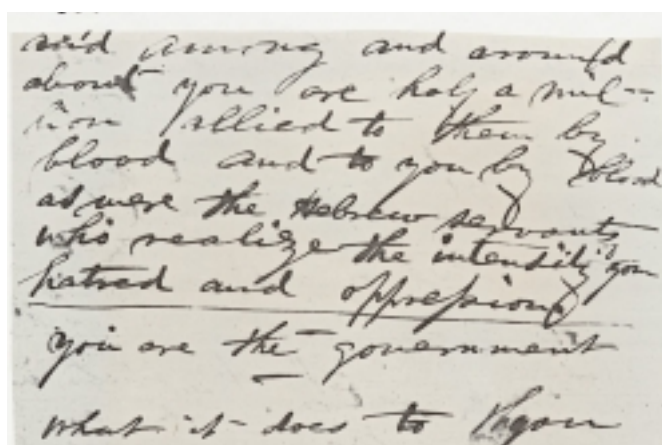 and among and around
about you are half a mil-
lion allied to them by
blood and to you by blood
as were the Hebrew servants
who realize the intensity of your
hatred and oppression
you are the government
what it does to you